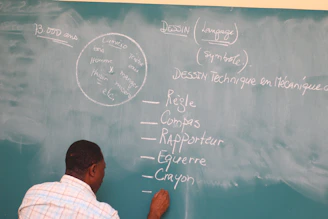 13 000 ans
DESSIN (langage)
(symbole)
DESSIN Technique en Mécanique
Règle
Compas
RAPPorteur
Equerre
Crayon